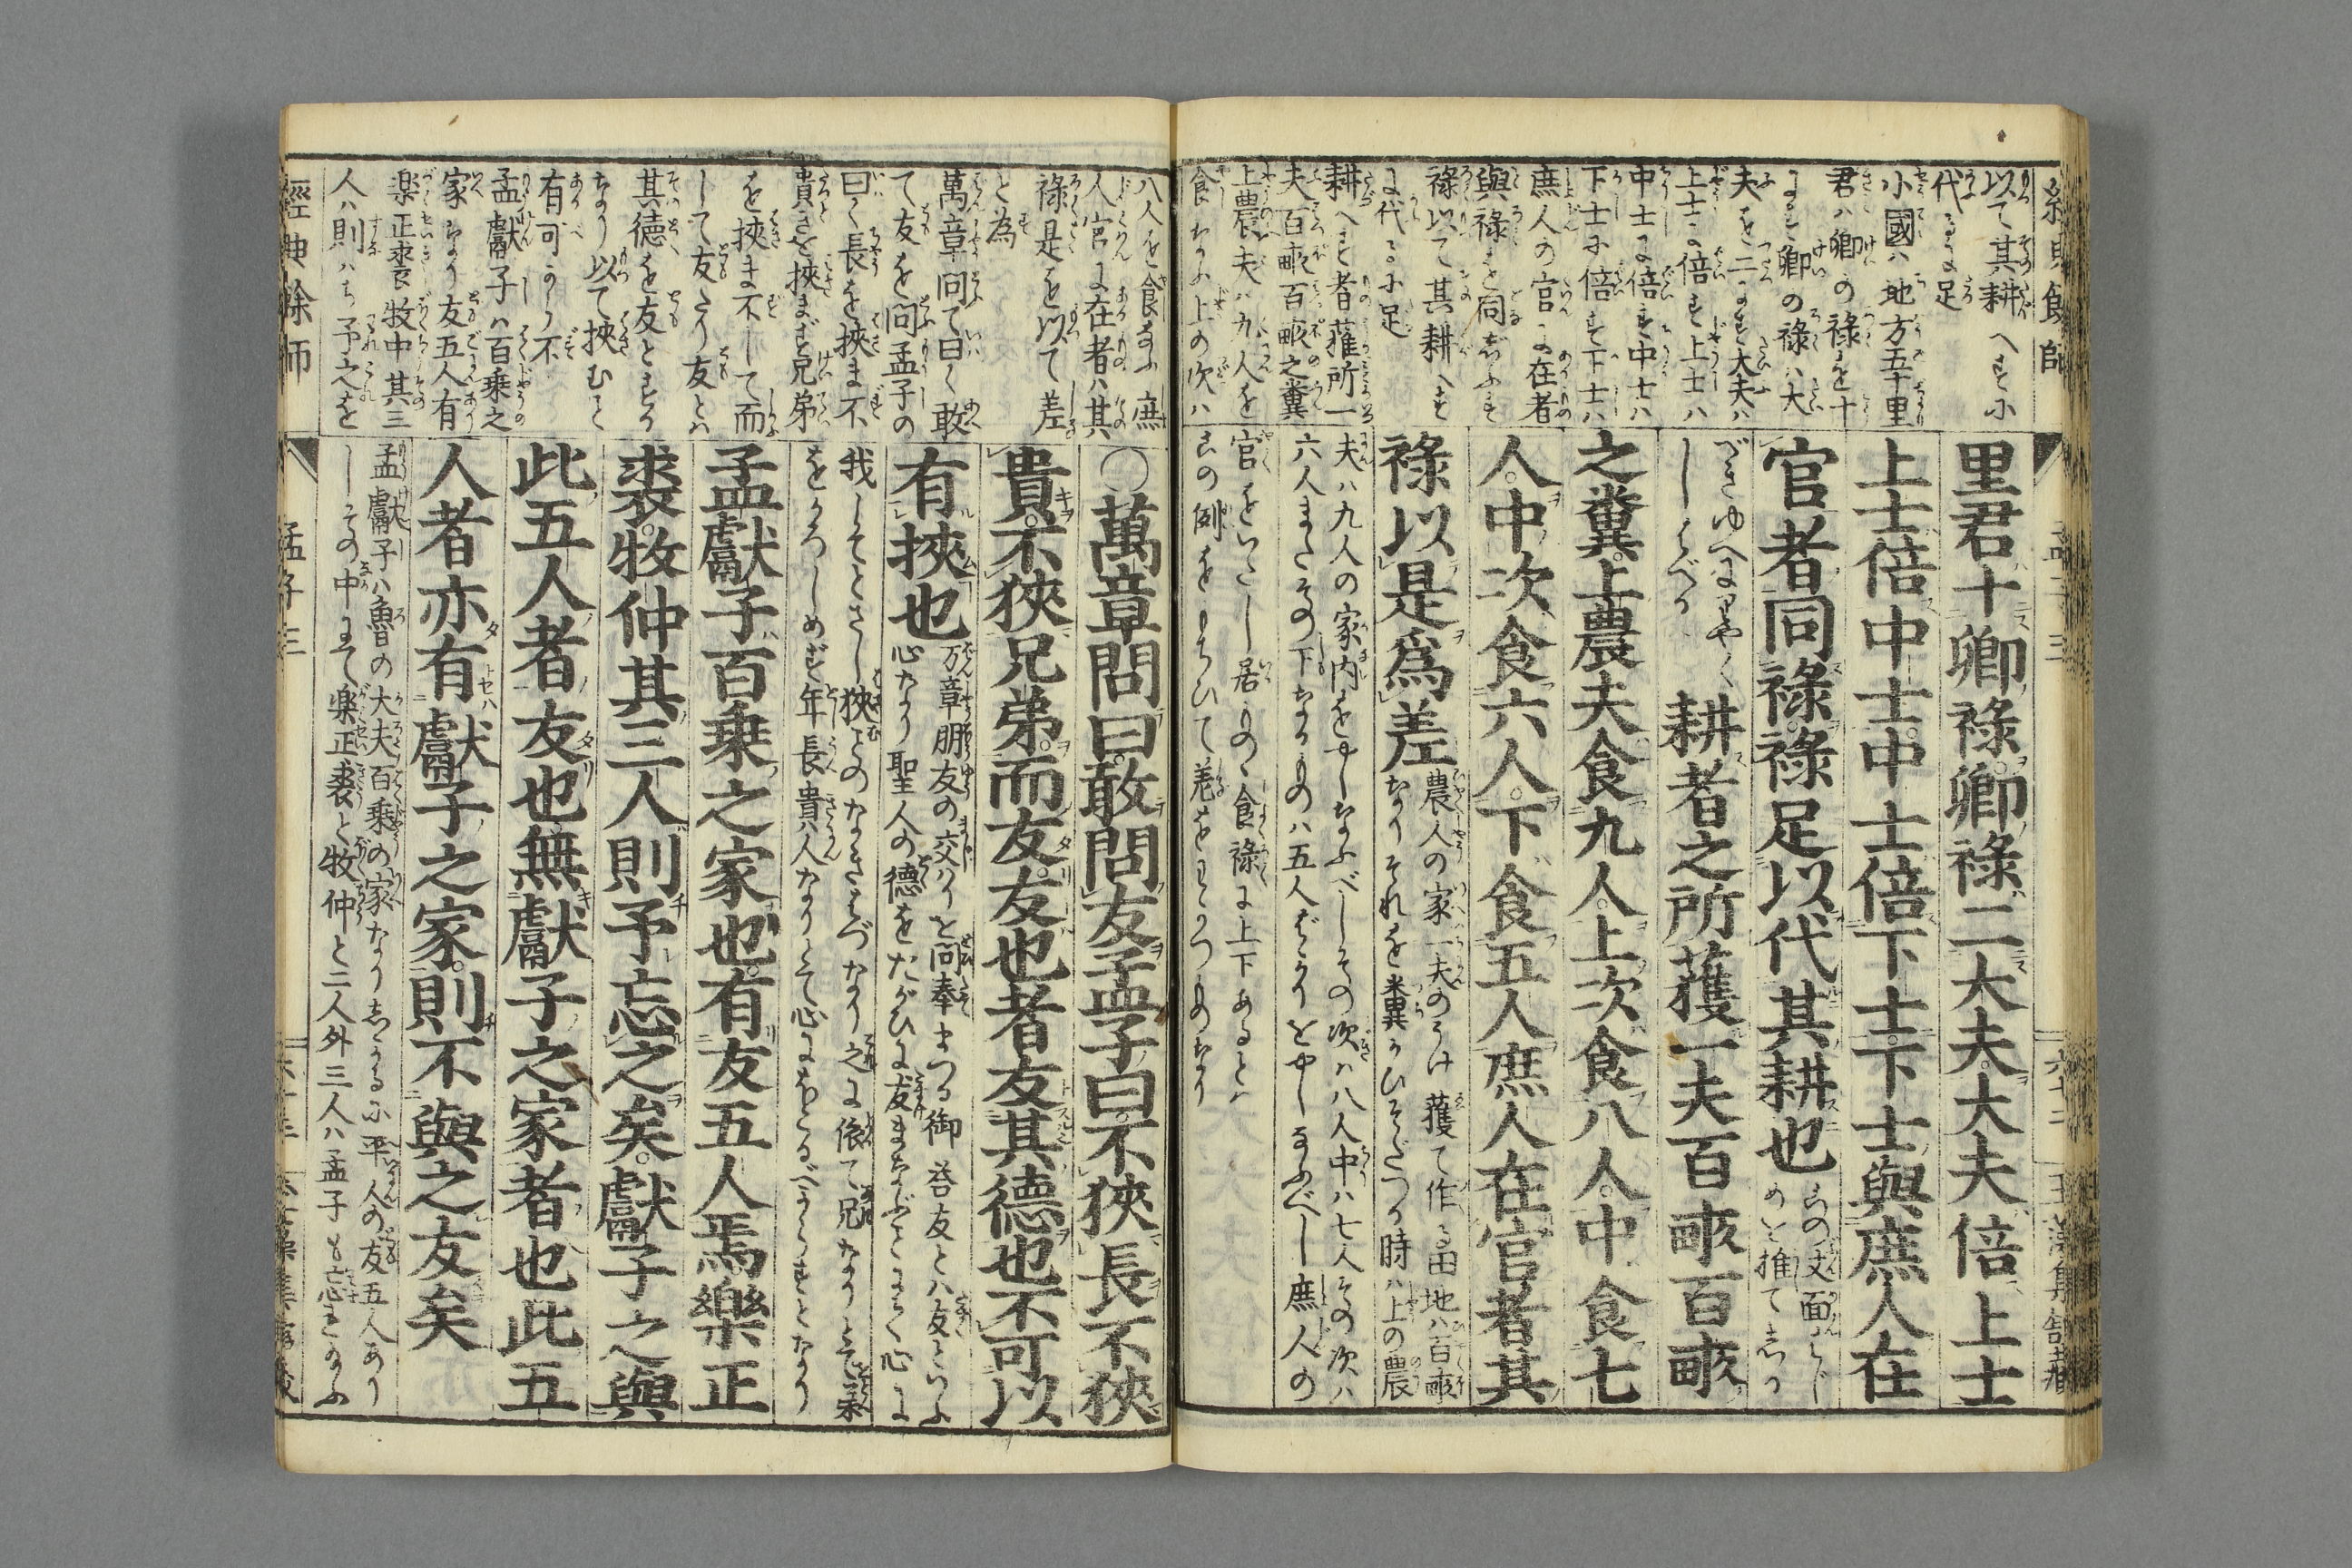 以て其耕へす小
代るに足
小國ハ地方五十里
君ハ卿の禄を十
にす卿の禄ハ大
夫を二にす大夫ハ
上士に倍す上士ハ
中士に倍す中士ハ
下士に倍す下士ハ
庶人の官に在者
與禄を同じふす
禄以て其耕へす
に代るに足
耕へす者獲所一
夫百畝百畝之糞
上農夫ハ九人を
食なふ上の次ハ
里君十卿禄。卿禄二大夫。大夫倍上士
上士倍中士。中士倍下士。下士與庶人在
官者同禄。禄足以代其耕也
耕者之所獲一夫百畝百畝
之糞。上農夫食九人。上次食八人。中食七
人。中次食六人。下食五人庶人在官者其
禄以是爲差
農人の家一夫のうけ獲て作る田地ハ百畝
夫ハ九人の家内をやしなふべしその次ハ八人中ハ七人その次ハ
六人またその下なるものハ五人ばかりをやしなふべし庶人の
官をいたし居もの食禄に上下あるとハ
この例をもちひて差をわかつものなり
八人を食なふ庶
人官に在者ハ其
禄是を以て差
と為
萬章問て曰く敢
て友を問孟子の
曰く長を挾ま不
貴きを挾まず兄弟
を挾ま不して而
して友たり友とハ
其徳を友とする
なり以て挾むこと
有可からず不
孟獻子ハ百乗之
家なり友五人有
楽正裘牧中其三
人ハ則ハち予之を
〇萬章問曰。敢問友孟子曰不狹長不狹
貴。不狹兄弟。而友。友也者友其德也不可以
有挾也
万章朋友の交ハりを問奉まつる御答友とハ友といふ
心なり聖人の德をたがひに友まなぶことにて心に
我してとさし狹ことのなきはづなり之に依て兄なりとて弟
をかろしめず年長貴人なりとて心にをとるべからずとなり
孟獻子百乗之家也。有友五人焉樂正
裘。牧仲其三人則予忘之矣。獻子之與
此五人者友也無獻子之家者也此五
人者亦有獻子之家。則不與之友矣
孟獻子ハ魯の大夫百乗の家なりしかるに平人の友五人あり
しその中にて楽正裘と牧仲と二人外三人ハ孟子も忘たまふ
經典餘師
孟子三